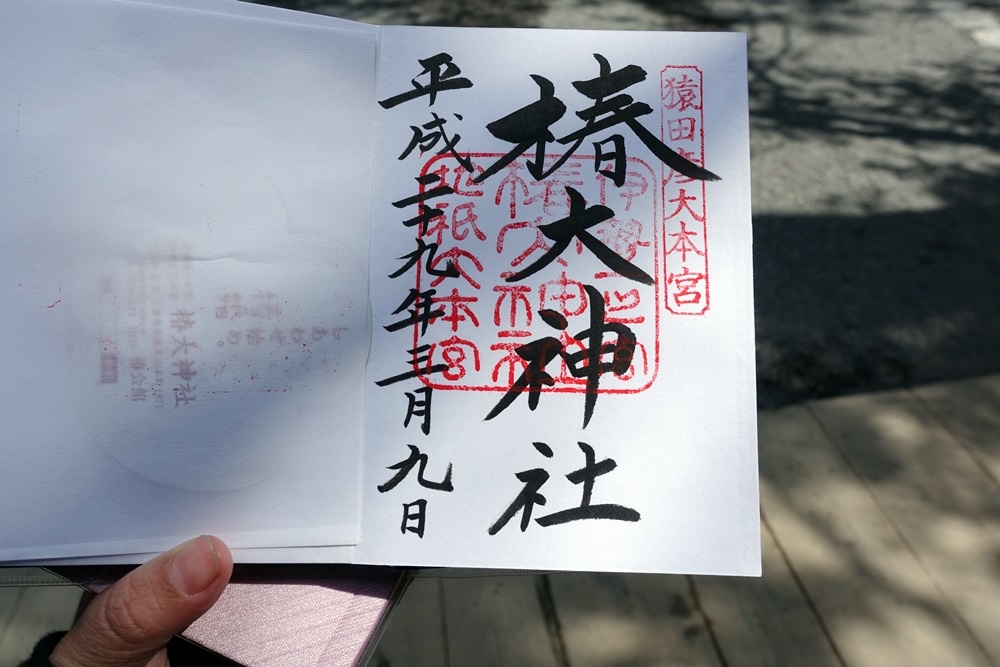 猿田彦大本宮
椿大神社
伊勢一之宮
椿大神社
地祇大本宮
平成二十九年三月九日
椿大神社